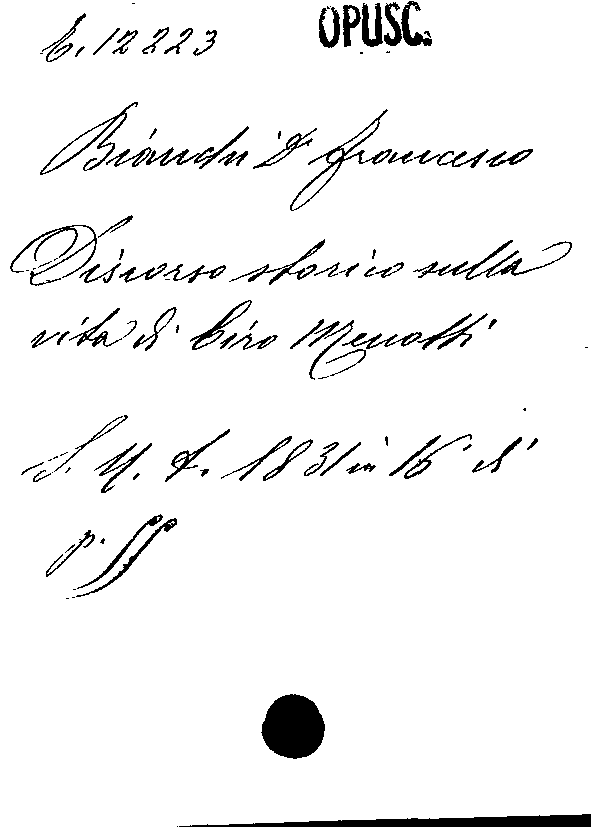 E. 12223 OPUSC.
Bianchi Dr Francesco
Discorso storico sulla
vita di Ciro Menotti
S. N. T. 1831 in 16° di
p. 55